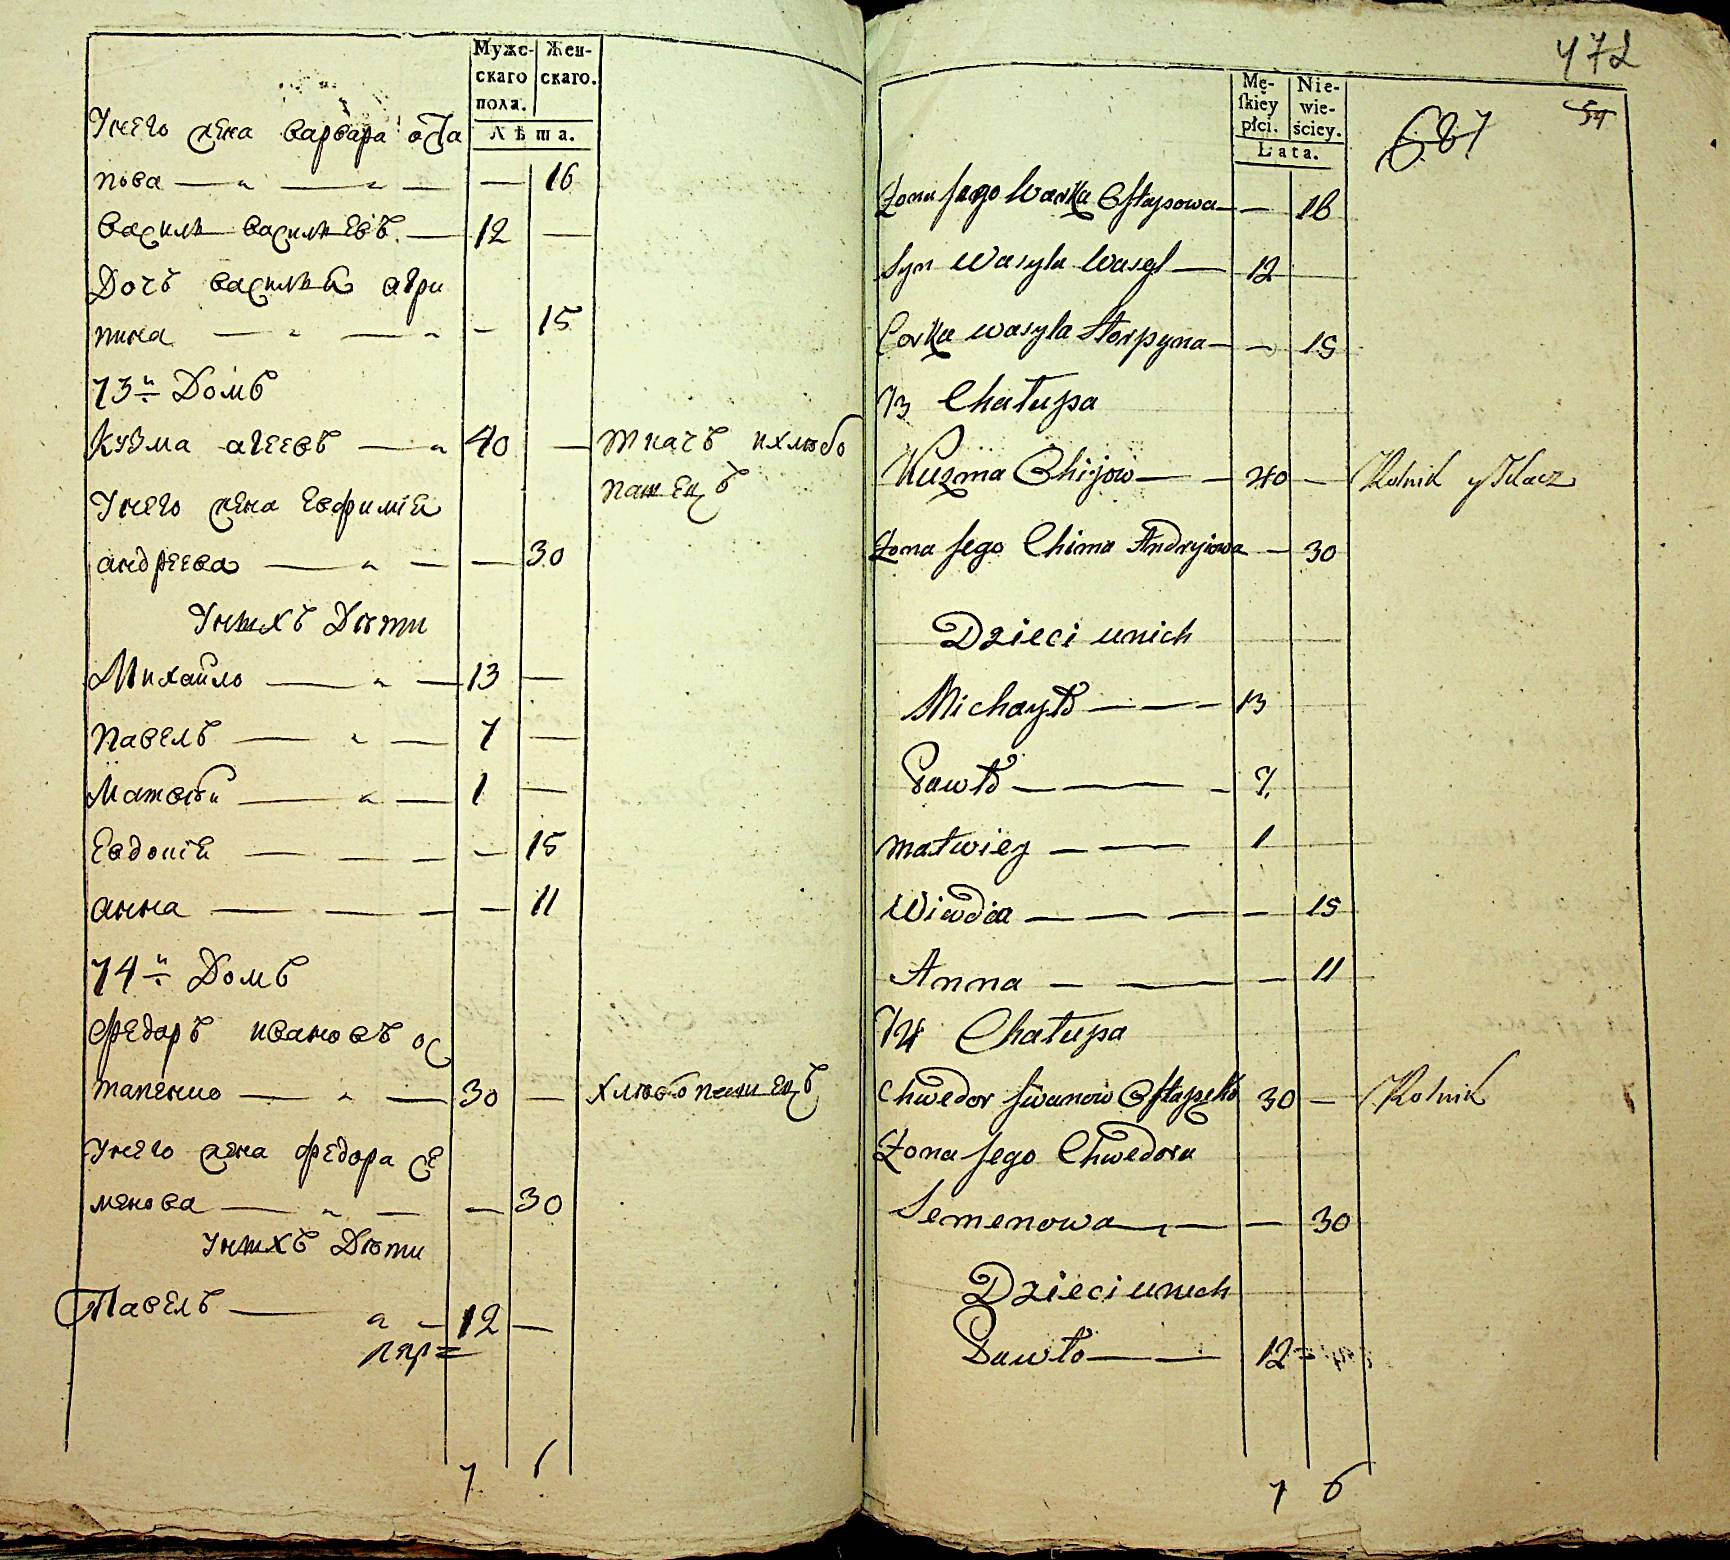 Мужс- Жен-
скаго скаго.
пола.
Лѣта.
Унего жена варвара оста
пова — „ — „ — — 16
василй василиевъ. — 12 —
Дочъ василия агри
пина — „ — „ — 15
73й Домъ
Кузма агеевъ — „ 40 — ткачъ ихлѣбо
пашецъ
Унего жена Евфимия
андреева — „ — — 30
Унихъ Дѣти
Михайло — „ — 13 —
павелъ — „ — 7 —
Матвѣй — „ — 1 —
Евдокия — — — — 15
анна — — — — 11
74й Домъ
Федоръ ивановъ ос
тапенко — „ — 30 — хлѣбопашецъ
Унего жена федора се
менова — „ — — 30
Унихъ Дѣти
Павелъ — „ — 12 —
7 6
472
54
Mę- Nie-
ſkiey wie-
płci. ściey.
Lata.
687
Żona Jego Warka Ostapowa — — 16
Syn Wasyla Wasyl — 12
Corka wasyla Horpyna — — 15
73 Chałupa
Kuzma Ohijow — — 40 — Rolnik y Tkacz
Żona Jego Chima Andryiowa — 30
Dzieci unich
Michayło — — — 13
Pawło — — — 7.
matwiey — — 1
Wiwdia — — — — 15
Anna — — — 11
74 Chałupa
Chwedor Iwanow Ostapenko 30 — Rolnik
Żona Jego Chwedora
Semenowa — — — 30
Dzieci unich
Pawło — — 12 —
7 6